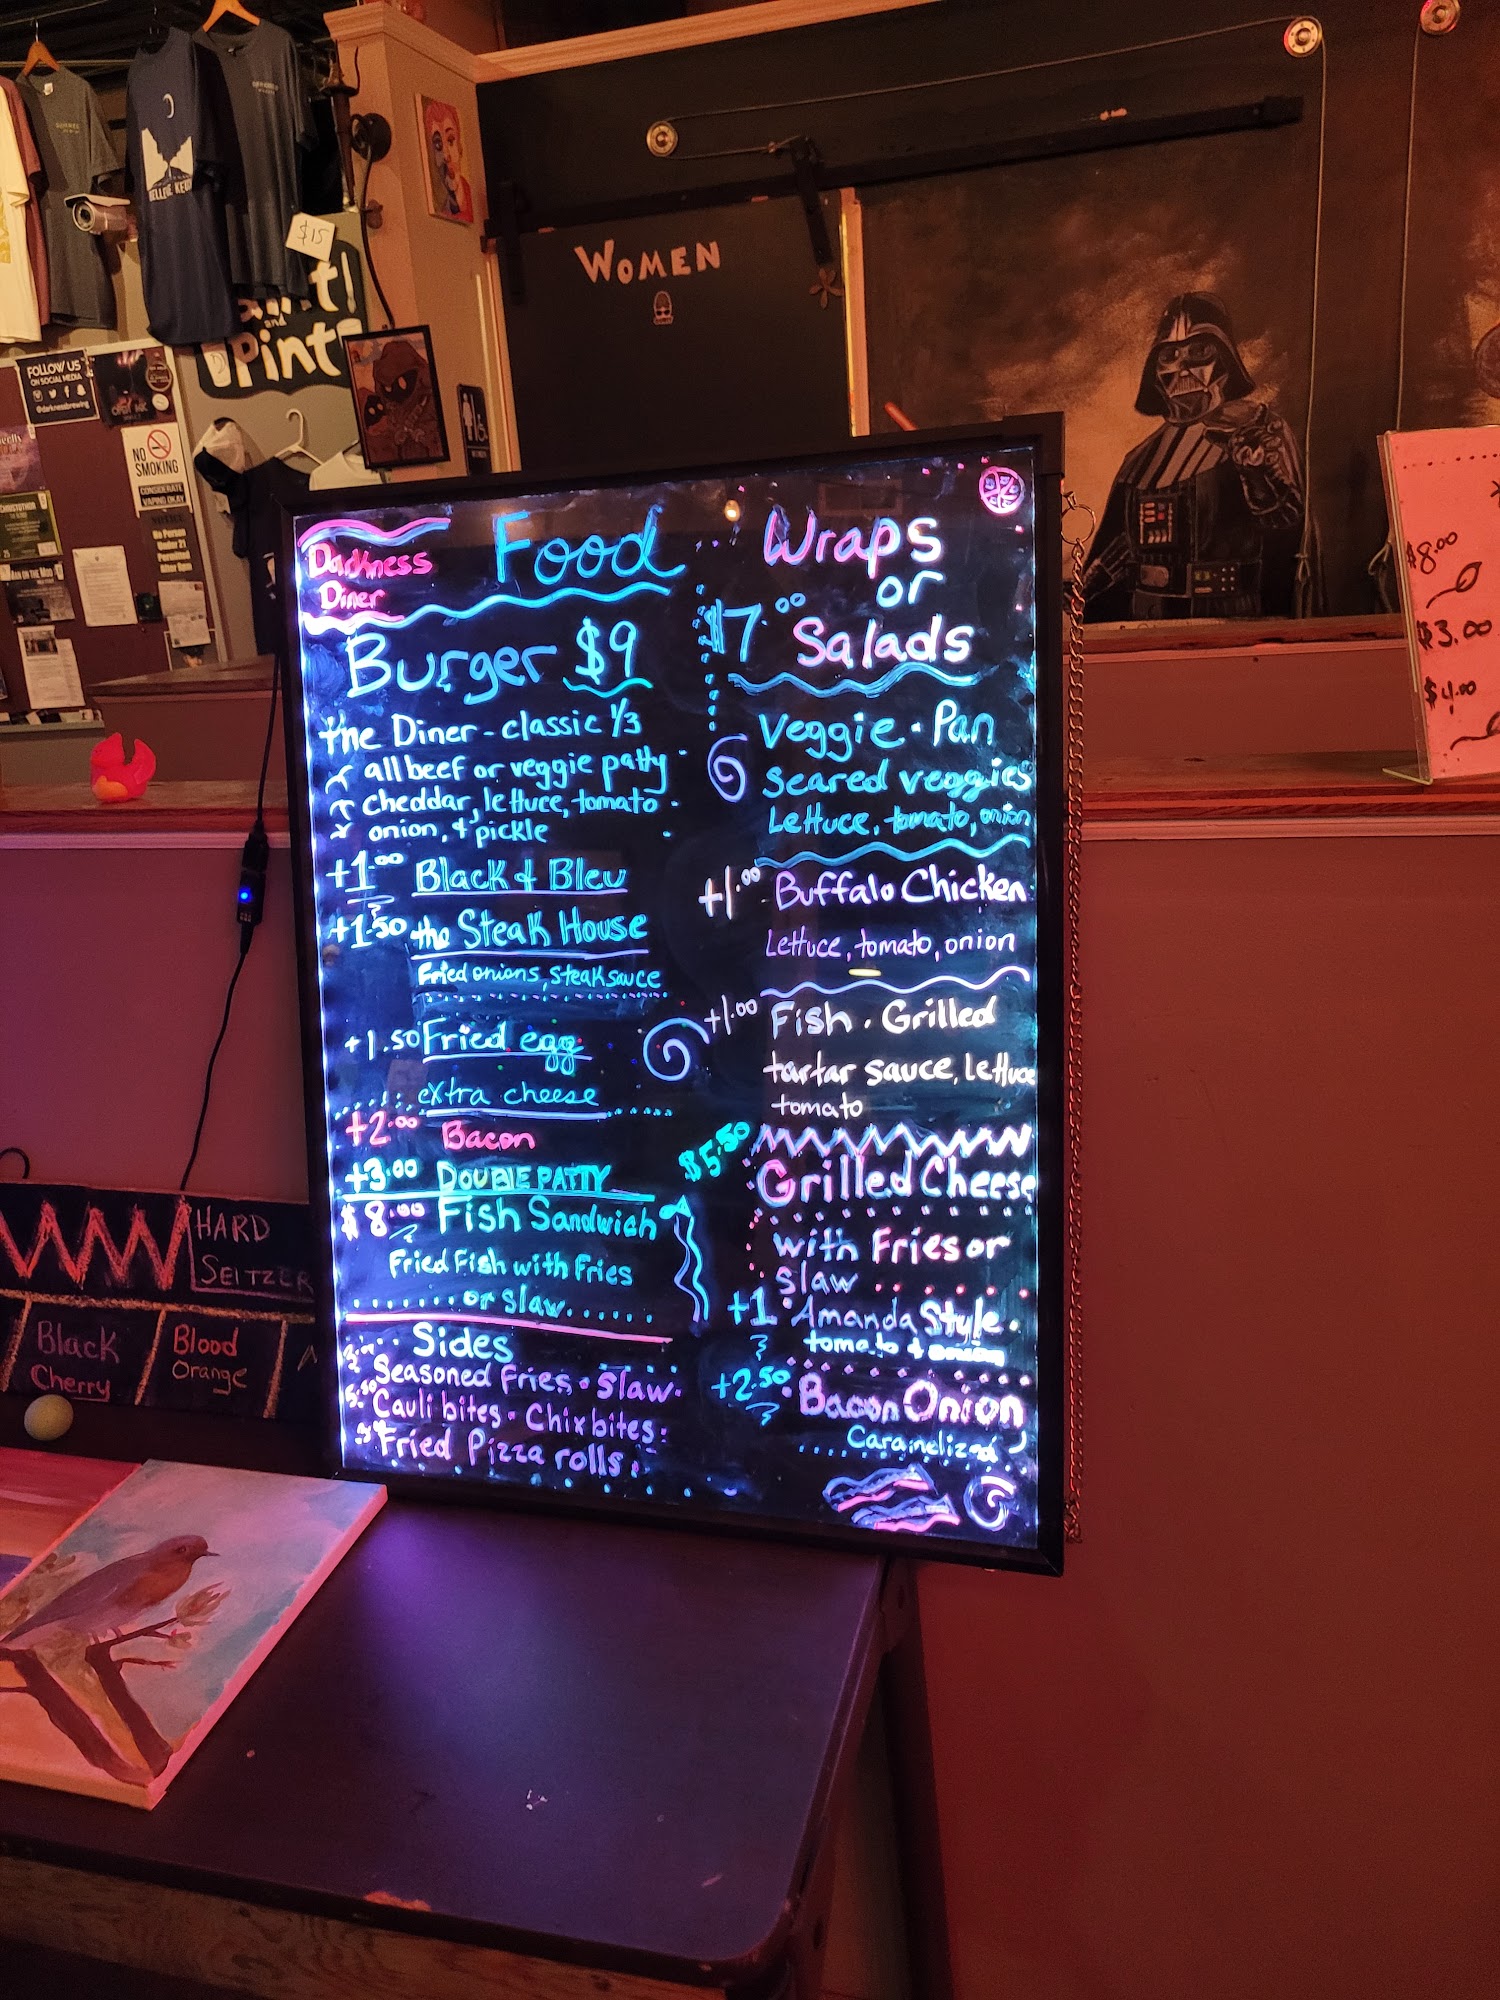 $15
Pint!
and
FOLLOW US
ON SOCIAL MEDIA
@darknessbrewing
NO
SMOKING
CONSIDERATE
VAPING OKAY
WOMEN
Darkness
Diner
Food
Burger $9
the Diner - classic 1/3
all beef or veggie patty
cheddar, lettuce, tomato
onion, & pickle
+1.00 Black & Bleu
+1.50 the Steak House
Fried onions, steak sauce
+1.50 Fried egg
extra cheese
+2.00 Bacon
+3.00 DOUBLE PATTY
$8.00 Fish Sandwich
Fried Fish with Fries
or slaw
Sides
Seasoned Fries • Slaw
Cauli bites • Chix bites
Fried Pizza rolls
Wraps
or
$7.00 Salads
Veggie • Pan
seared veggies
Lettuce, tomato, onion
+1.00 Buffalo Chicken
Lettuce, tomato, onion
+1.00 Fish • Grilled
tartar sauce, lettuce
tomato
$5.50
Grilled Cheese
with Fries or
slaw
+1 Amanda Style
tomato & onion
+2.50 Bacon Onion
Caramelized
$8.00
$3.00
$4.00
HARD
SELTZER
Black
Cherry
Blood
Orange